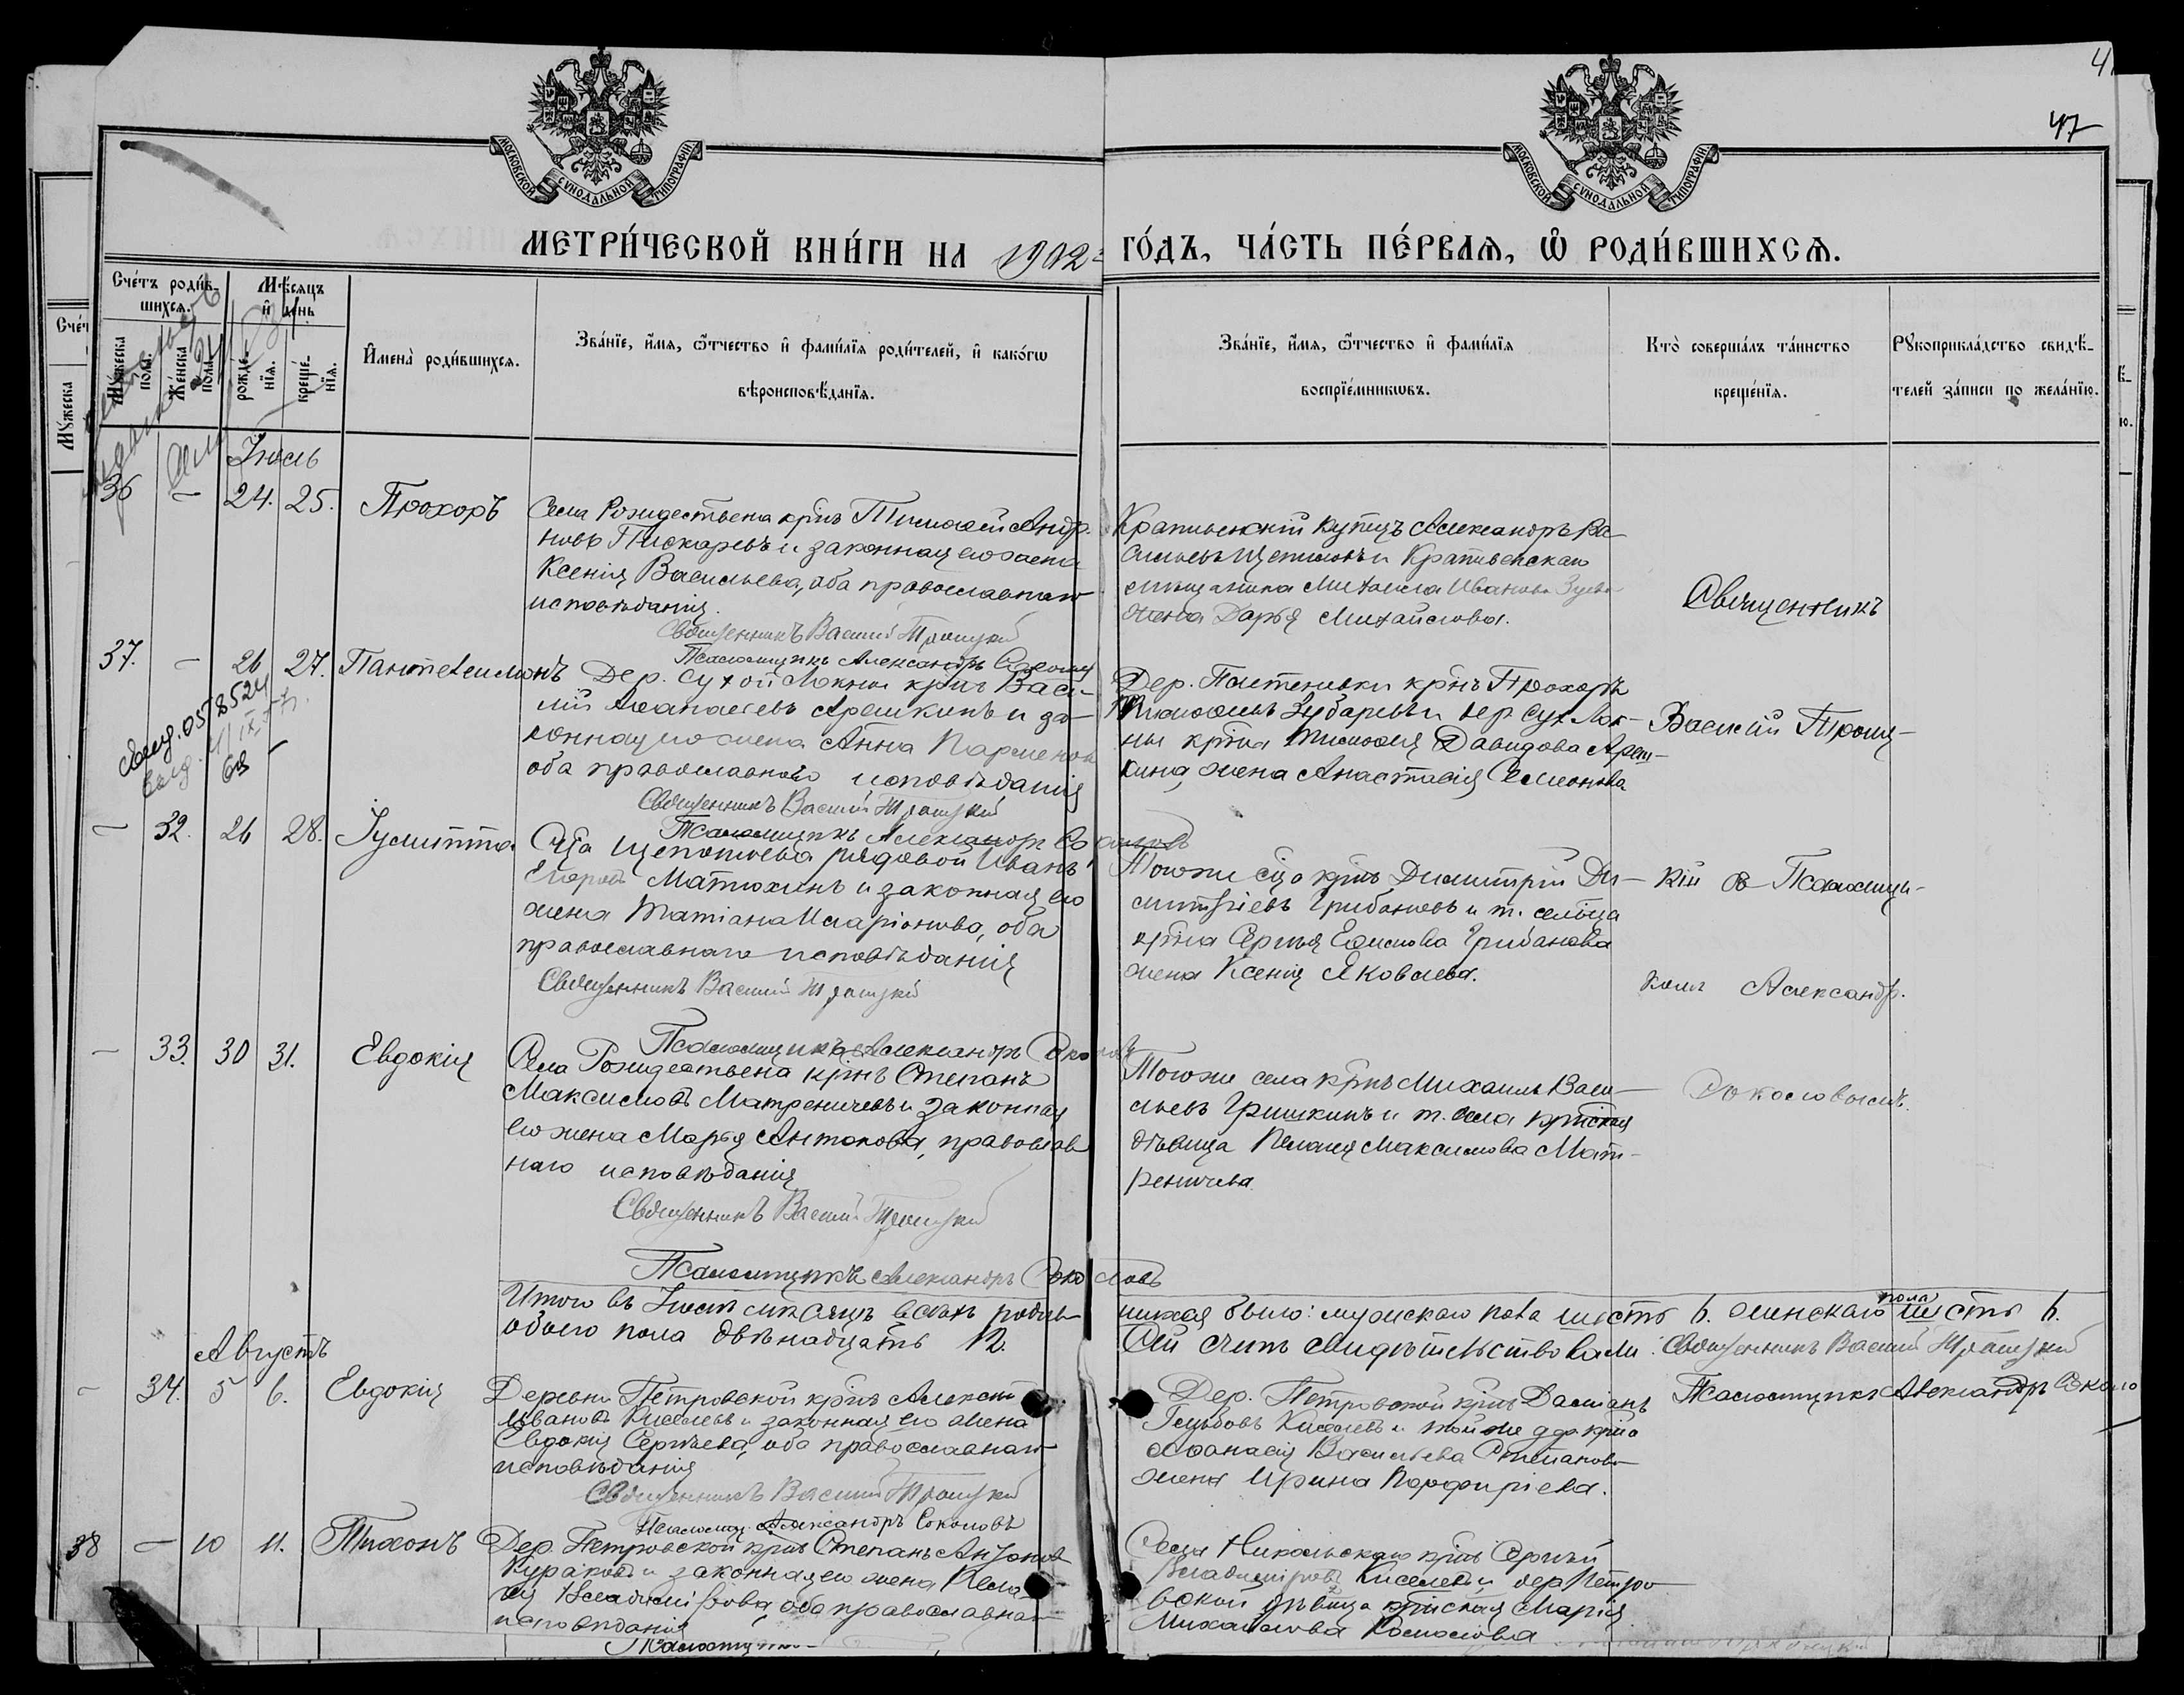 МОСКОВСКОЙ СѴНОДАЛЬНОЙ ТИПОГРАФІИ
МОСКОВСКОЙ СѴНОДАЛЬНОЙ ТИПОГРАФІИ
47
МЕТРИ́ЧЕСКОЙ КНИ́ГИ НА 1902 ГО́ДЪ, ЧА́СТЬ ПЕ́РВАѦ, Ѡ҆ РОДИ́ВШИХСѦ.
Сче́тъ роди́в-
шихсѧ.
Мѣ́сѧцъ
и҆ де́нь
Мꙋ́жеска
по́ла.
Же́нска
по́ла.
рожде́-
нїѧ.
креще́-
нїѧ.
И҆мена̀ роди́вшихсѧ.
Зва́нїе, и҆́мѧ, ѻ҆́тчество и҆ фами́лїѧ роди́телей, и҆ како́гѡ
вѣроисповѣ́данїѧ.
Зва́нїе, и҆́мѧ, ѻ҆́тчество и҆ фами́лїѧ
воспрїе́мникѡвъ.
Кто̀ соверша́лъ та́инство
креще́нїѧ.
Рꙋкоприкла́дство свидѣ́-
телей за́писи по жела́нїю.
Іюль
36 — 24. 25. Прохоръ
Села Рождествена крн̃ъ Тимоѳей
Пискаревъ и законная его жена
Ксенія Васильева, оба православнаго
исповѣданія.
Священникъ Василій Троицкій
Псаломщикъ Александръ Соколовъ
Крапивенскій купецъ Александръ Ва-
сильевъ и Крапивенскаго
мѣщанина Михаила Иванова Зуева
жена Дарья Михайлова.
Священникъ
37. — 26 27. Пантелеимонъ
Дер. Сухой Локны крн̃ъ Васи-
лій Аѳанасьевъ Арешкинъ и за-
конная его жена Анна Парменова
оба православнаго исповѣданія
Священникъ Василій Троицкій
Псаломщикъ Александръ Соколовъ
Дер. Пастенивки крн̃ъ Прохоръ
Тимоѳеевъ Зубаревъ и дер. Сух. Лок-
ны крн̃на Тимоѳея Давидова Ареш-
кина, жена Анастасія Семенова
Василій Троиц-
— 32. 26 28. Іулитта
Сц̃а Щепотьева рядовой Иванъ
Егоровъ Матюхинъ и законная его
жена Татіана Иларіонова, оба
православнаго исповѣданія
Священникъ Василій Троицкій
Псаломщикъ Александръ Соколовъ
Тогоже сц̃а крн̃ъ Димитрій Ди-
митріевъ Грибановъ и т. сельца
крн̃на Сергѣя Ефимова Грибанова
жена Ксенія Яковлева.
кій съ Псаломщи-
комъ Александр.
— 33. 30 31. Евдокія
Села Рождествена крн̃ъ Степанъ
Максимовъ Матреничевъ и законная
его жена Марья Антонова, православ
наго исповѣданія
Священникъ Василій Троицкій
Псаломщикъ Александръ Соколовъ
Тогоже села крн̃ъ Михаилъ Васи-
льевъ Гришкинъ и т. села крн̃ская
дѣвица Пелагія Максимова Мат-
реничева
Соколовымъ.
Итого въ Іюлѣ мѣсяцѣ всѣхъ родив-
шихся было: мужскаго пола шесть 6. женскаго пола шесть 6.
обоего пола двѣнадцать 12.
Сей счетъ свидѣтельствовали: Священникъ Василій Троицкій
Псаломщикъ Александръ Соколо
Августъ
— 34. 5 6. Евдокія
Деревни Петровской крн̃ъ Алексѣй
Ивановъ Киселевъ и законная его жена
Евдокія Сергѣева, оба православнаго
исповѣданія
Священникъ Василій Троицкій
Псаломщ. Александръ Соколовъ
Дер. Петровской крн̃ъ Даміанъ
Глѣбовъ Киселевъ и той же дер. крн̃на
Аѳанасія Васильева Степанова
жена Ирина Порфиріева.
38 — 10 11. Тихонъ
Дер. Петровской крн̃ъ Степанъ Антонов
Кураковъ и законная его жена Пела
гія Владимірова, оба православнаго
исповѣданія
Псаломщик
Села Никольскаго крн̃ъ Сергѣй
Владиміровъ Киселевъ и дер. Петро
вской дѣвица крн̃ская Марія
Михайлова